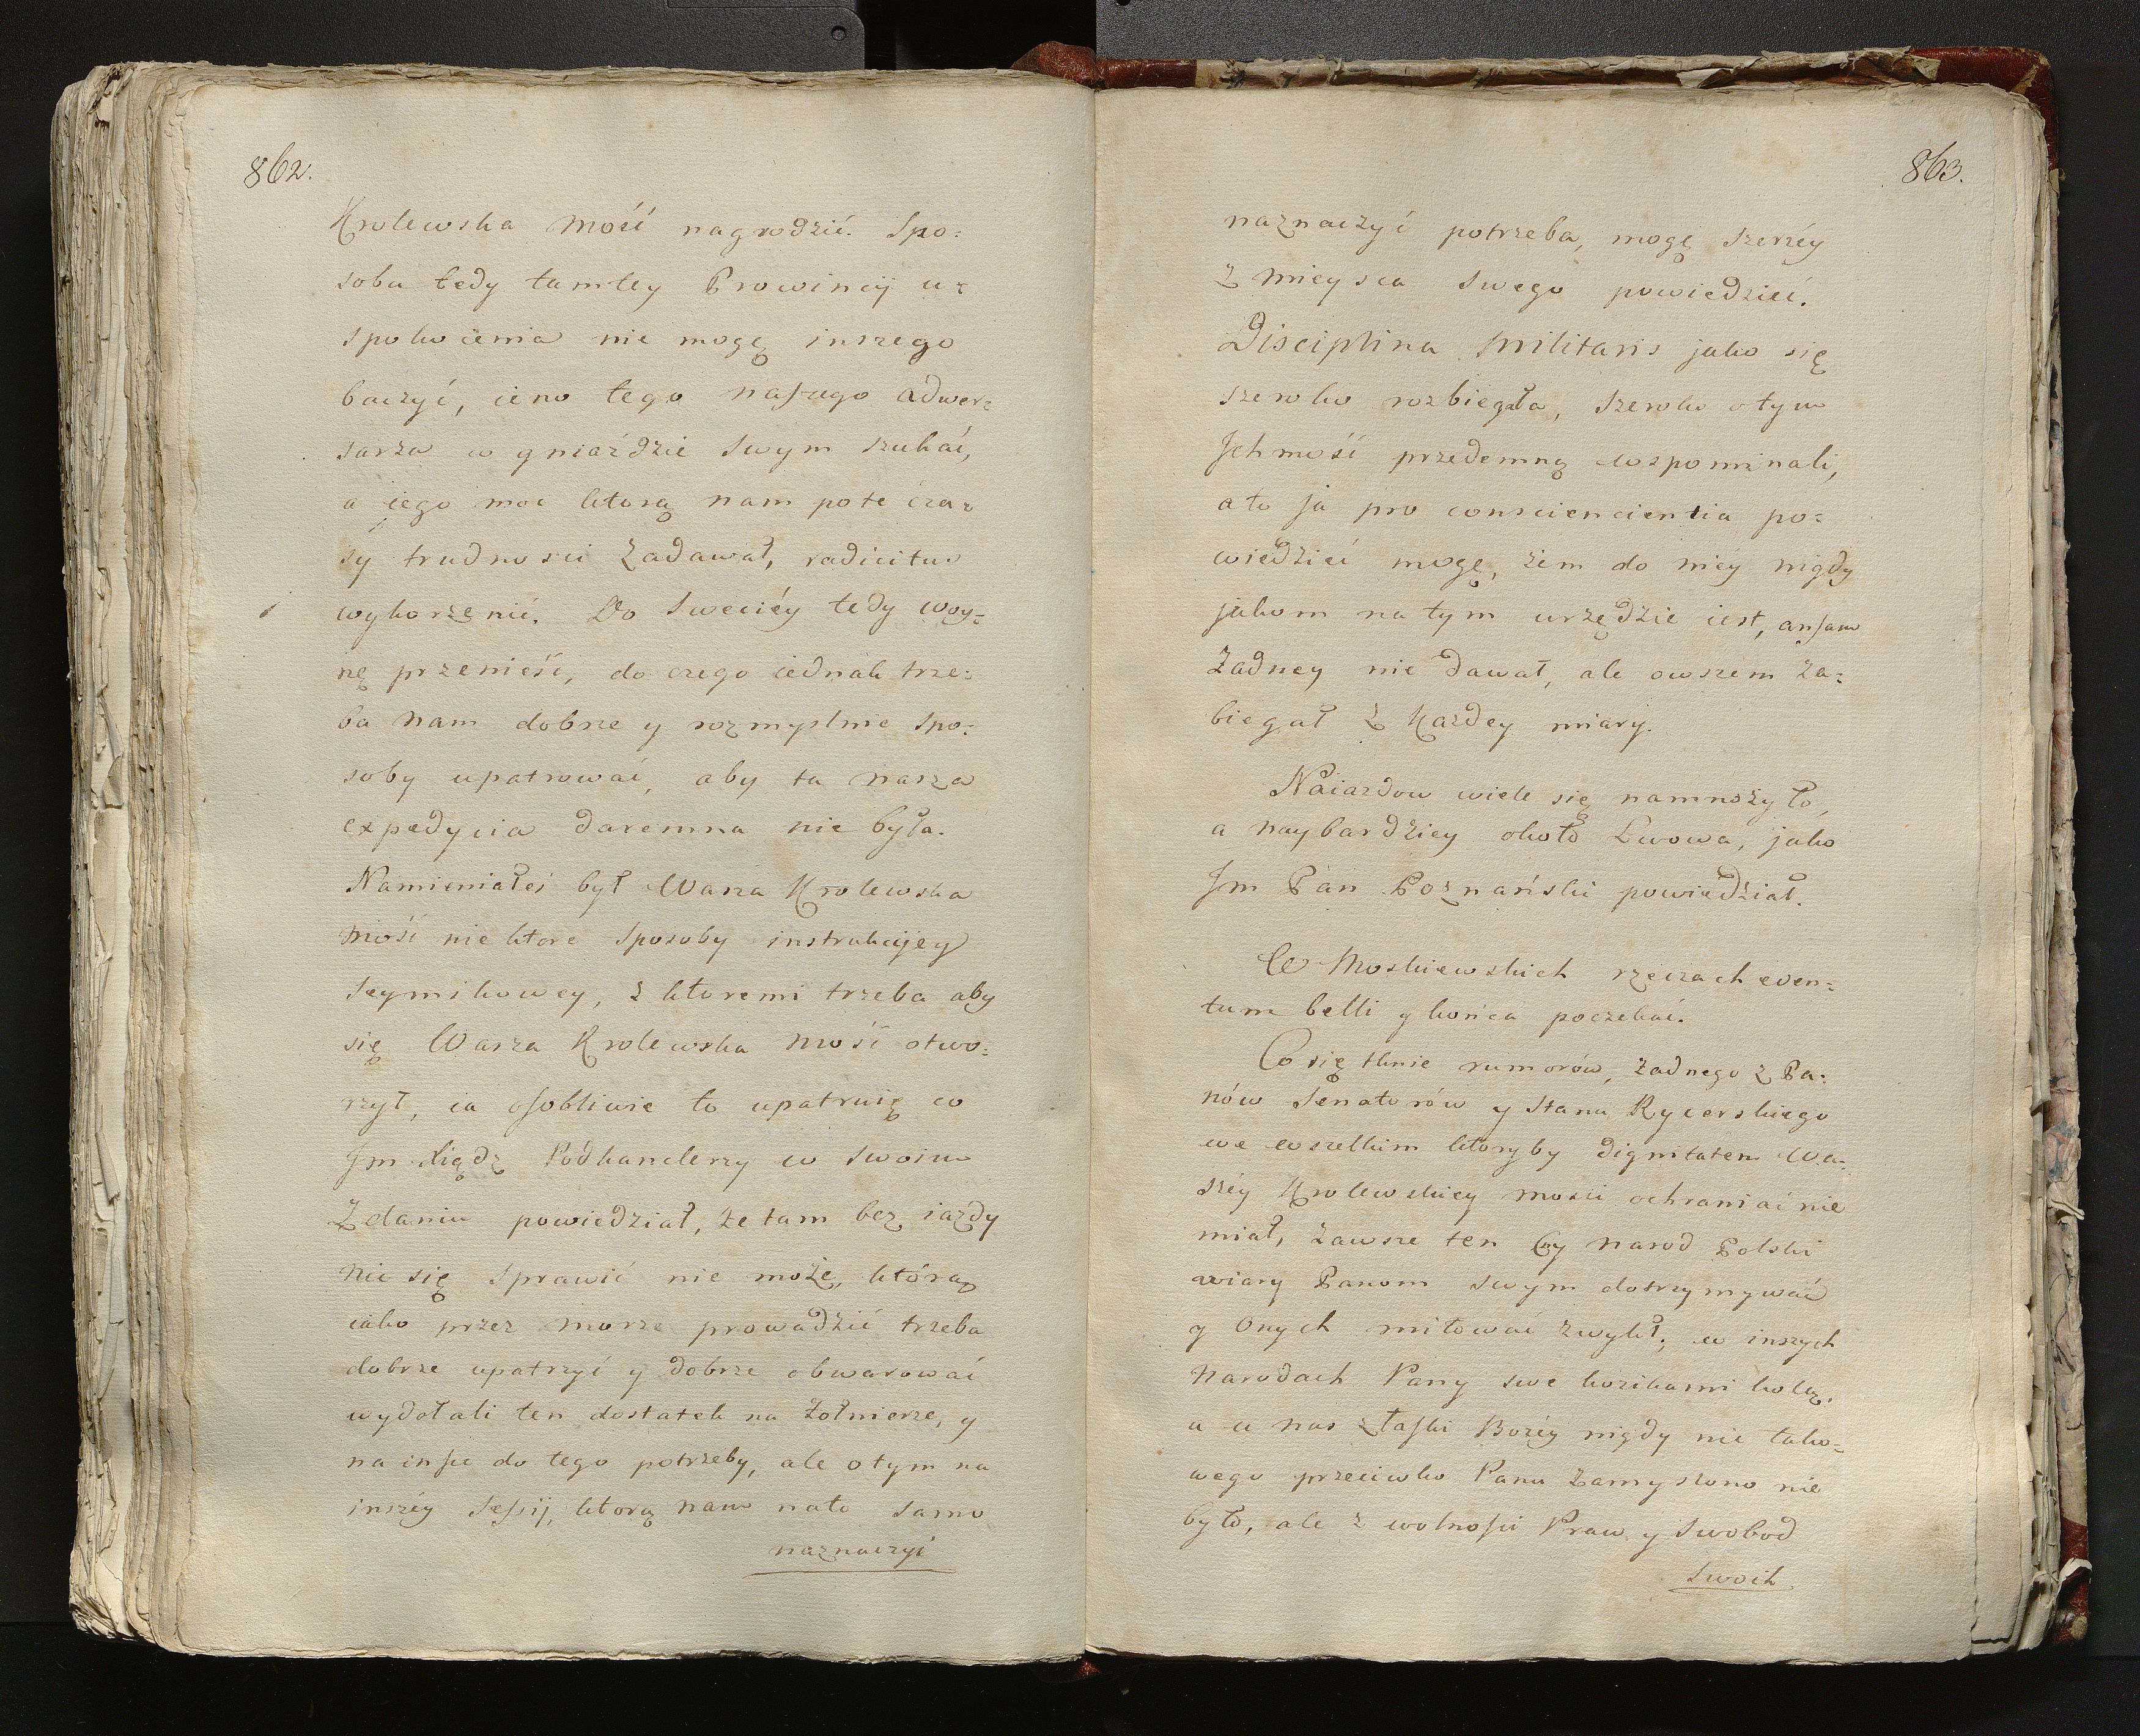 862.
Krolewska Mość nagrodzić. Spo=
sobu tedy tamtey Prowincij u=
spokoienia nie mogę inszego
baczyć, ieno tego naszego adwer=
sarza w gniaździe swym szukać,
a iego moc którą nam po te cza=
sy trudności zadawał, radicitus
wykorzenić. Do Sweciéy tedy woy=
nę przenieść, do czego iednak trze=
ba nam dobrze y rozmyślnie spo=
soby upatrować, aby ta nasza
expedycia daremna nie była.
Namieniałeś był Wasza Krolewska
Mość niektore sposoby instrukcijey
Seymikowey, z ktoremi trzeba aby
się Wasza Krolewska Mość otwo=
rzył, ia osobliwie to upatruię co
Jm Xiądz Podkanclerzy w swoim
Zdaniu powiedział, że tam bez iazdy
nic się sprawić nie może, którą
iako przez morze prowadzić trzeba
dobrze upatrzyć y dobrze obwarować
wydołali ten dostatek na żołnierze, y
na insze do tego potrzeby, ale o tym na
inszéy Sessij, ktorą nam nato samo
naznaczyć
863.
naznaczyć potrzeba, mogę szerzéy
z mieysca swego powiedzieć.
Disciplina Militaris jako się
szeroko rozbiegała, szeroko otym
Ichmość przedemną wspominali,
a to ja pro consciencientia po=
wiedzieć mogę, żem do niéy nigdy
jakom na tym urzędzie iest, ansam
żadney nie dawał, ale owszem za=
biegał z każdey miary.
Naiazdow wiele się namnożyło,
a naybardziey około Lwowa, jako
Jm Pan Poznański powiedział.
W Moskiewskich rzeczach even=
tum belli y końca poczekać.
Co się tknie rumorów, żadnego z Pa=
nów Senatorów y Stanu Rycerskiego
we wszelkim ktoryby dignitatem Wa=
széy Krolewskiey mości ochraniać nie
miał, zawsze ten Cny Narod Polski
wiary Panom swym dotrzymywać
y Onych miłować zwykł; w inszych
Narodach Pany swe kozikami kolą,
a u nas z łaski Bożéy nigdy nic tako=
wego przeciwko Panu zamyslono nie
było, ale z wolności Praw y Swobod
Swoich